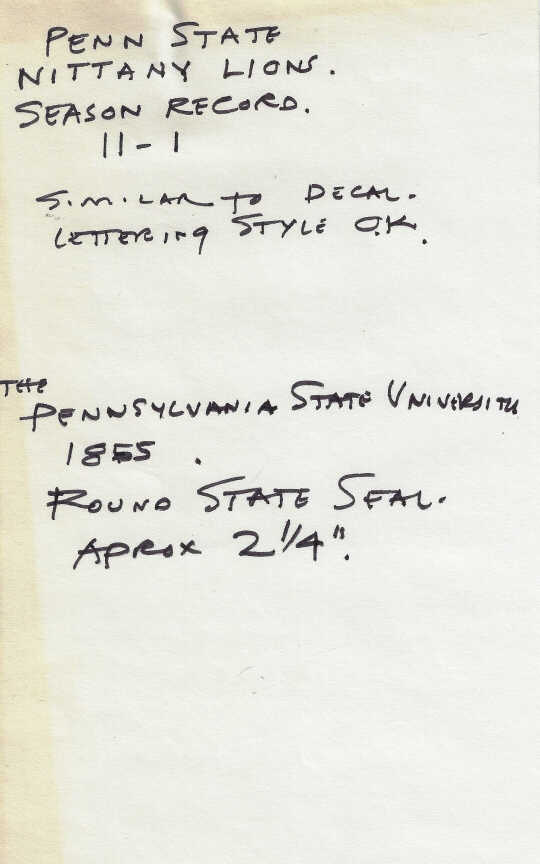 PENN STATE
NITTANY LIONS.
SEASON RECORD.
11-1
SIMILAR TO DECAL.
LETTERING STYLE O.K.
THE
PENNSYLVANIA STATE UNIVERSITY
1855.
ROUND STATE SEAL.
APROX 2 1/4".